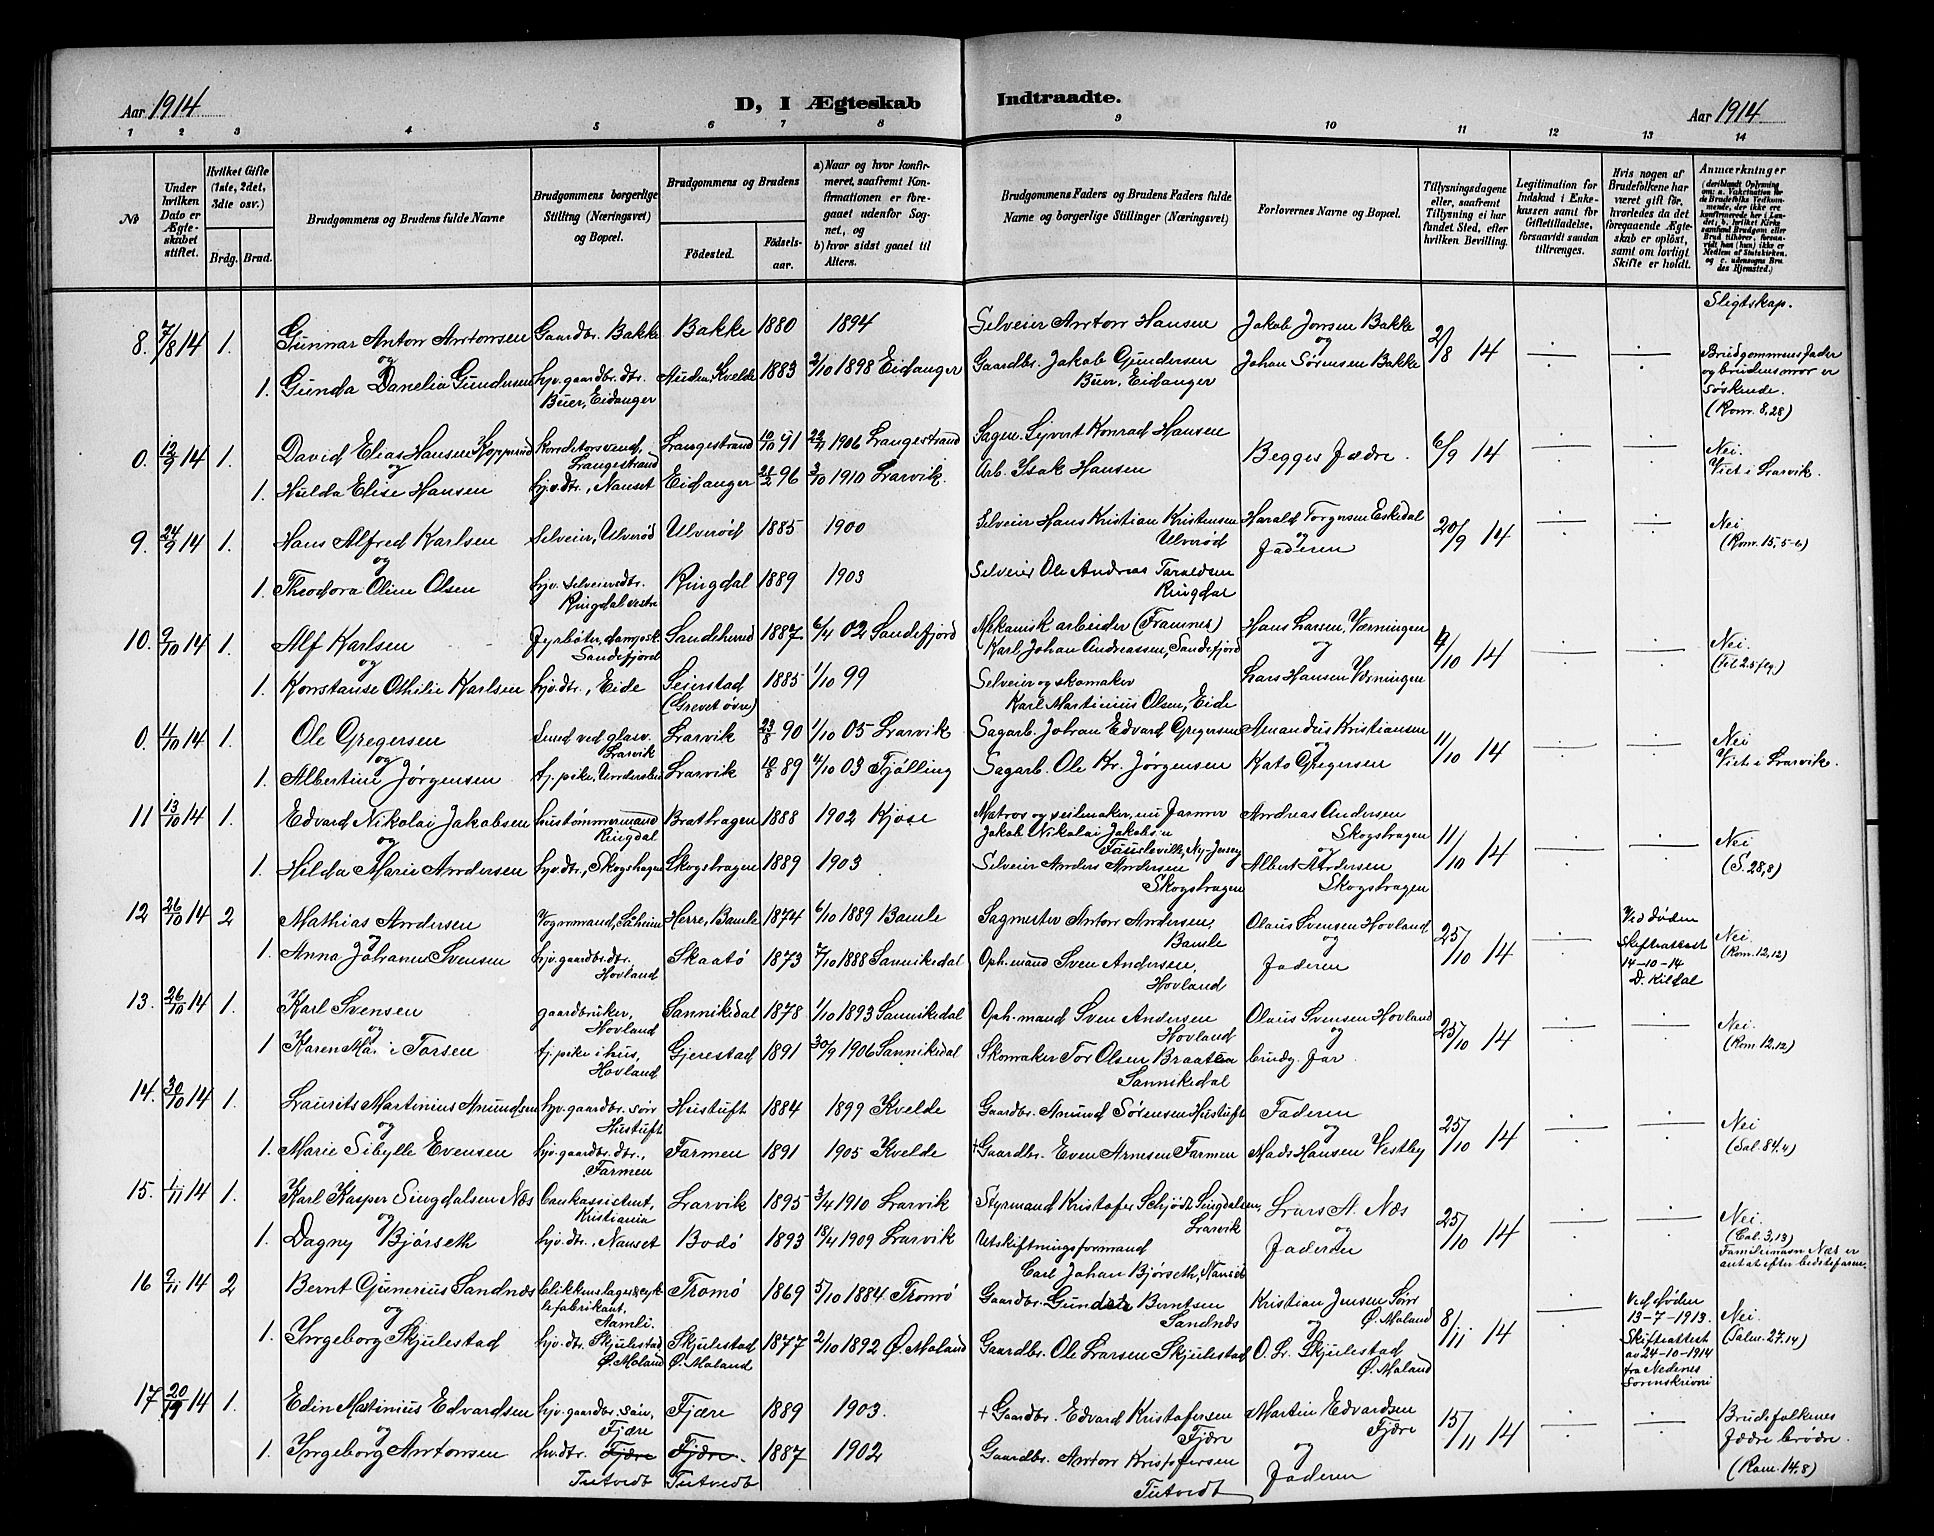 Aar 1914
D, I Ægteskab Indtraadte.
Aar 1914
1 2 3 4 5 6 7 8 9 10 11 12 13 14
№
Under hvilken Dato er Ægteskabet stiftet.
Hvilket Gifte (1ste, 2det, 3die osv.)
Brdg. Brud.
Brudgommens og Brudens fulde Navne
Brudgommens borgerlige Stilling (Næringsvei) og Bopæl.
Brudgommens og Brudens
Fødested. Fødselsaar.
a) Naar og hvor konfirmeret, saafremt Konfirmationen er foregaaet udenfor Sognet, og
b) hvor sidst gaaet til Alters.
Brudgommens Faders og Brudens Faders fulde Navne og borgerlige Stillinger (Næringsvei)
Forlovernes Navne og Bopæl.
Tillysningsdagene eller, saafremt Tillysning ei har fundet Sted, efter hvilken Bevilling.
Legitimation for Indskud i Enkekassen samt for Giftetilladelse, forsaavidt saadan tiltrænges.
Hvis nogen af Brudefolkene har været gift før, hvorledes da det foregaaende Ægteskab er opløst, samt om lovligt Skifte er holdt.
Anmærkninger
8. 7/8 14 1. Gunnar Anton Antonsen Gaardbr. Bakke Bakke 1880 1894 Selveier Anton Hansen Jakob Jonsen Bakke 2/8 14 Sligtskap.
og
1. Gunda Danelia Gundersen hjv. gaardbr. dtr. Buer, Eidanger Auden, Kvelde 1883 2/10 1898 Eidanger Gaardbr. Jakob Gundersen Buer, Eidanger og Johan Sørensen Bakke Brudgommens fader og brudens mor er søskende. (Rom. 8,28)
0. 12/9 14 1. David Elias Hansen Langestrand 10/10 91 1906 Langestrand Sagm. Sivert Konrad Hansen Begges Fædre. 6/9 14 Nei. Viet i Larvik.
og
1. Hulda Elise Hansen hjv. dtr., Nanset Eidanger 24/2 96 2/10 1910 Larvik. Arb. Isak Hansen
9. 24/9 14 1. Hans Alfred Karlsen Selveier, Ulverød Ulverød 1885 1900 Selveier Hans Kristian Kristensen Ulverød Harald Torgersen Eskedal 20/9 14 Nei (Rom. 15,5-6)
og
1. Theodora Oline Olsen hjv. selveierdtr. Ringdal vestre Ringdal 1889 1903 Selveier Ole Andreas Taraldsen Ringdal og Faderen
10. 9/10 14 1. Alf Karlsen Fyrbøter, dampsk. Sandefjord Sandeherred 1887 6/4 02 Sandefjord Mekanisk arbeider (Framnes) Karl Johan Andreassen, Sandefjord Hans Larsen, Værningen 4/10 14 Nei.
og
1. Konstanse Othilie Karlsen hjv. dtr., Eide Seierstad (Grevet øvre) 1885 1/10 99 Selveier og skomaker Karl Martinius Olsen, Eide og Lars Hansen Værningen
0. 11/10 14 1. Ole Gregersen Smed ved glasv. Larvik Larvik 23/8 90 1/10 05 Larvik Sagarb. Johan Edvard Gregersen Amandus Kristiansen 11/10 14 Nei Viet i Larvik.
og
1. Albertine Jørgensen tj. pike, Larvik 89 4/10 03 Tjølling Sagarb. Ole Kr. Jørgensen og Kato Gregersen
11 13/10 14 1. Edvard Nikolai Jakobsen hustømmermand Ringdal Brathagen 1888 1902 Kjose Matros og seilmaker, nu farmer Jakob Nikolai Jakobsen Ny-Jersey Andreas Andersen Skogshagen 11/10 14 Nei (S. 28,8)
og
1. Hilda Marie Andersen hjv. dtr., Skogshagen Skogshagen 1889 1903 Selveier Anders Andersen Skogshagen og Albert Andersen Skogshagen
12 26/10 14 2 Mathias Andersen Vognmand, Saaheim Herre, Bamle 1874 6/10 1889 Bamle Sagmester Anton Andersen, Bamle Olaus Svensen Hovland 25/10 14 Ved døden Skifteattest 14-10-14 D. Kildal Nei. (Rom. 12,12)
og
1. Anna Johanne Svensen hjv. gaardbr. dtr. Hovland Skaatø 1873 7/10 1888 Sannikedal Oph.mand Sven Andersen, Hovland og Faderen
13. 26/10 14 1. Karl Svensen gaardbruker, Hovland Sannikedal 1878 1/10 1893 Sannikedal Oph.mand Sven Andersen Hovland Olaus Svensen Hovland 25/10 14 Nei. (Rom. 12,12)
og
1 Karen Marie Torsen tj. pike i hus, Hovland Gjerestad 1891 30/9 1906 Sannikedal Skomaker Tor Olsen Braaten Sannikedal og brudg. far.
14. 30/10 14 1. Laurits Martinius Amundsen hjv. gaardbr. søn Hustuft Hustuft 1884 1899 Kvelde Gaardbr. Amund Sørensen Hustuft Faderen 25/10 14 Nei (Sal. 84.4)
og
1. Marie Sibylle Evensen hjv. gaardbr. dtr., Farmen Farmen 1891 1905 Kvelde + Gaardbr. Even Arnesen Farmen og Mads Hansen Vestby
15. 1/11 14 1. Karl Kasper Singdalsen Næs bankassistent, Kristiania Larvik 1895 3/4 1910 Larvik Styrmand Kristofer Schjødt Singdalsen, Larvik Lars A. Næs 25/10 14 Nei. (Col. 3,13) Familienavn Næs er antat efter bedstefaren.
og
1. Dagny Bjørseth hjv. dtr., Nanset Bodø 1893 18/4 1909 Larvik Utskiftningsformand Carl Johan Bjørseth, Nanset og Faderen
16 9/11 14 2 Bernt Gunerius Sandnæs blikkenslager & cyklefabrikant. Tromø 1869 5/10 1884 Tromø Gaardbr. Gunder Berntsen Sandnæs Kristian Jensen Sør Ø. Moland 8/11 14 Ved døden 13-7-1913. Skifteattest av 24-10-1914 fra Nedenes Sorenskriveri Nei (Salm. 27.14)
og
1. Ingeborg Skjulestad hjv. dtr. Skjulestad Ø. Moland Skjulestad Ø. Moland 1877 2/10 1892 Ø. Moland Gaardbr. Ole Larsen Skjulestad og O. L. Skjulestad Ø. Moland
17 20/11 14 1. Edin Martinius Edvardsen hjv. gaardbr. søn, Fjære Fjære 1889 1903. + Gaardbr. Edvard Kristofersen Fjære Martin Edvardsen Fjære 15/11 14 Brudefolkenes fædre brødre. (Rom. 14,8)
og
1. Ingeborg Antonsen hv. dtr. Fjære Tutvedt Fjære. Tutvedt 1887 1902 Gaardbr. Anton Kristofersen Tutvedt og Faderen